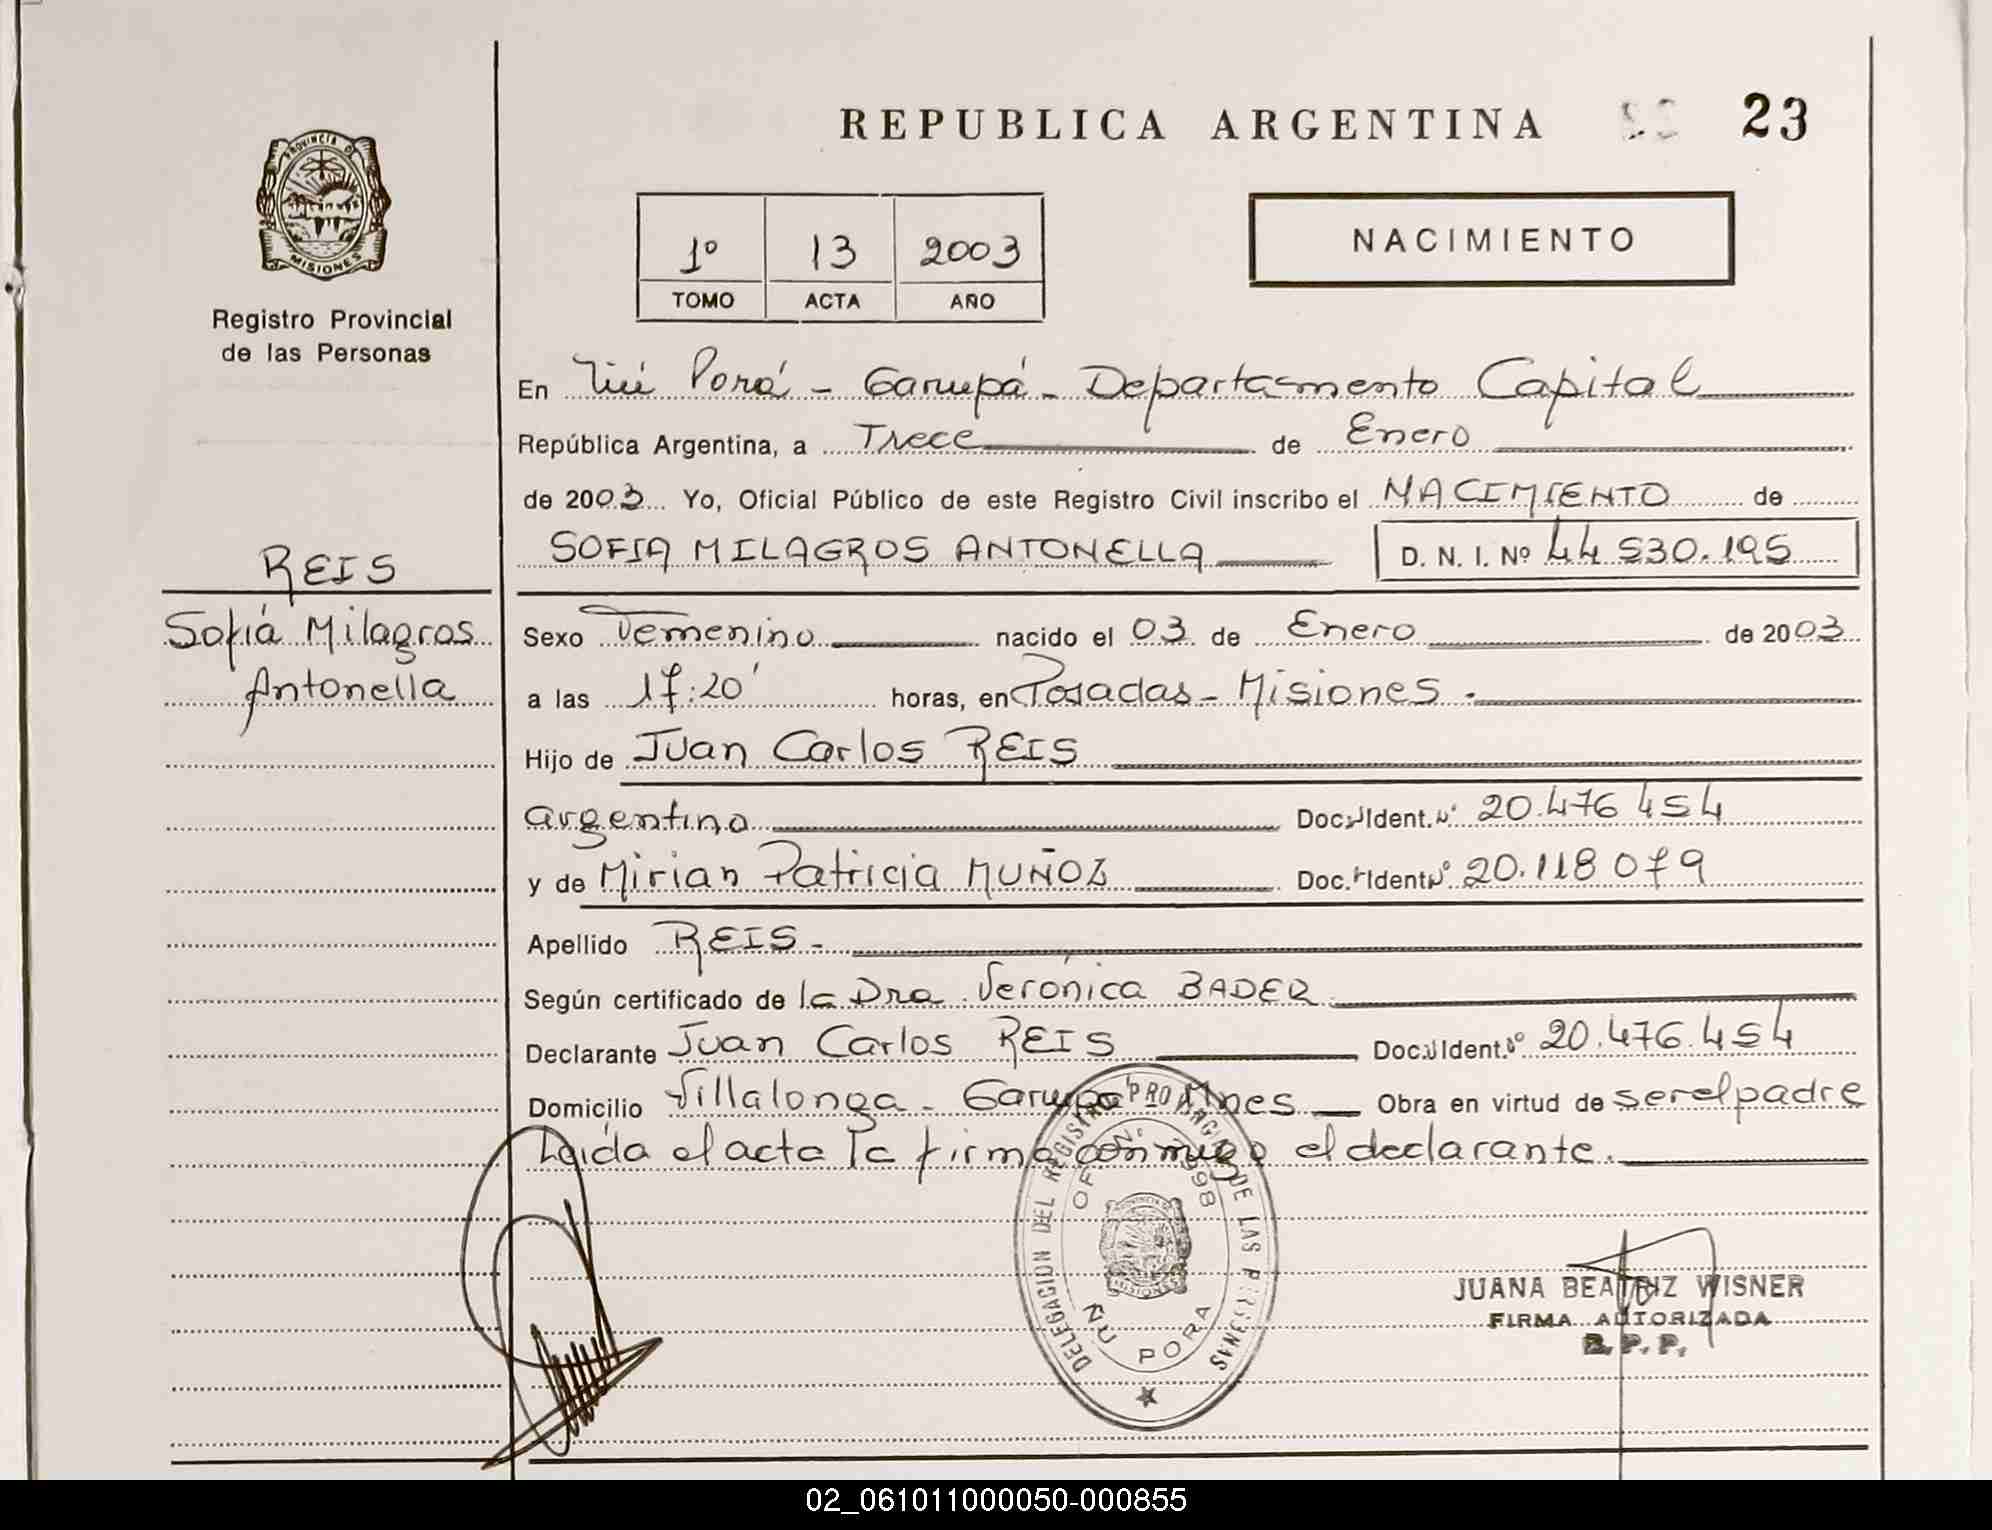 REPUBLICA ARGENTINA 23
PROVINCIA DE
MISIONES
Registro Provincial
de las Personas
1º 13 2003
TOMO ACTA AÑO
NACIMIENTO
En Ñu Porá - Garupá - Departamento Capital
República Argentina, a Trece de Enero
de 2003 Yo, Oficial Público de este Registro Civil inscribo el NACIMIENTO de
SOFIA MILAGROS ANTONELLA D. N. I. Nº 44.530.195
REIS
Sofiá Milagros
Antonella
Sexo Femenino nacido el 03 de Enero de 2003
a las 17:20' horas, en Posadas - Misiones.
Hijo de Juan Carlos REIS
argentino Doc. Ident. Nº 20.476 454
y de Mirian Patricia MUÑOZ Doc. Ident Nº 20.118 079
Apellido REIS -
Según certificado de la Dra. Verónica BADER
Declarante Juan Carlos REIS Doc. Ident. Nº 20.476.454
Domicilio Villalonga - Garupá Mnes Obra en virtud de ser el padre
Leida el acta la firma conmigo el declarante.
DELEGACION DEL REGISTRO PROVINCIAL DE LAS PERSONAS
OF. Nº 998
ÑU PORA
JUANA BEATRIZ WISNER
FIRMA AUTORIZADA
R. P. P.
02_061011000050-000855